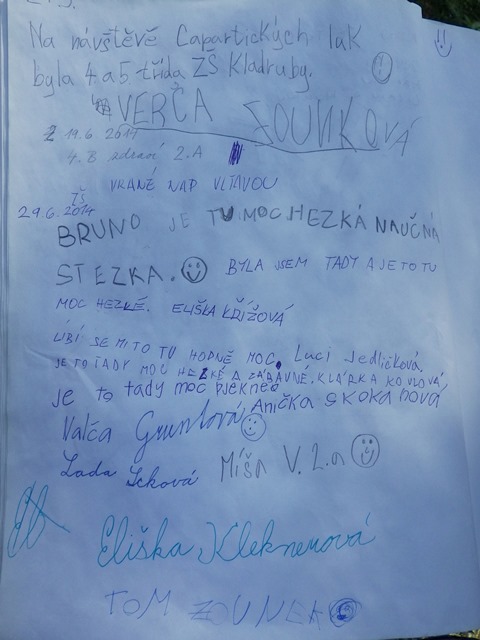 Na návštěvě Capartických luk
byla 4. a 5 třída ZŠ Kladruby.
VERČA ZOUNKOVÁ
19.6 2014
4. B zdraví 2.A
ZŠ VRANÉ NAD VLTAVOU
29.6.2014
BRUNO JE TU MOC HEZKÁ NAUČNÁ
STEZKA. BYLA JSEM TADY A JE TO TU
MOC HEZKÉ. ELIŠKA KŘÍŽOVÁ
LÍBÍ SE MI TO TU HODNĚ MOC. Luci Jedličková
JE TO TADY MOC HEZKÉ A ZÁBAVNÉ. KLÁRKA
je to tady moc pjekné Anička Skoka nová
Valča Gruntová
Lada Míša V. 2.a
Eliška Kleknerová
TOM ZOUNEK